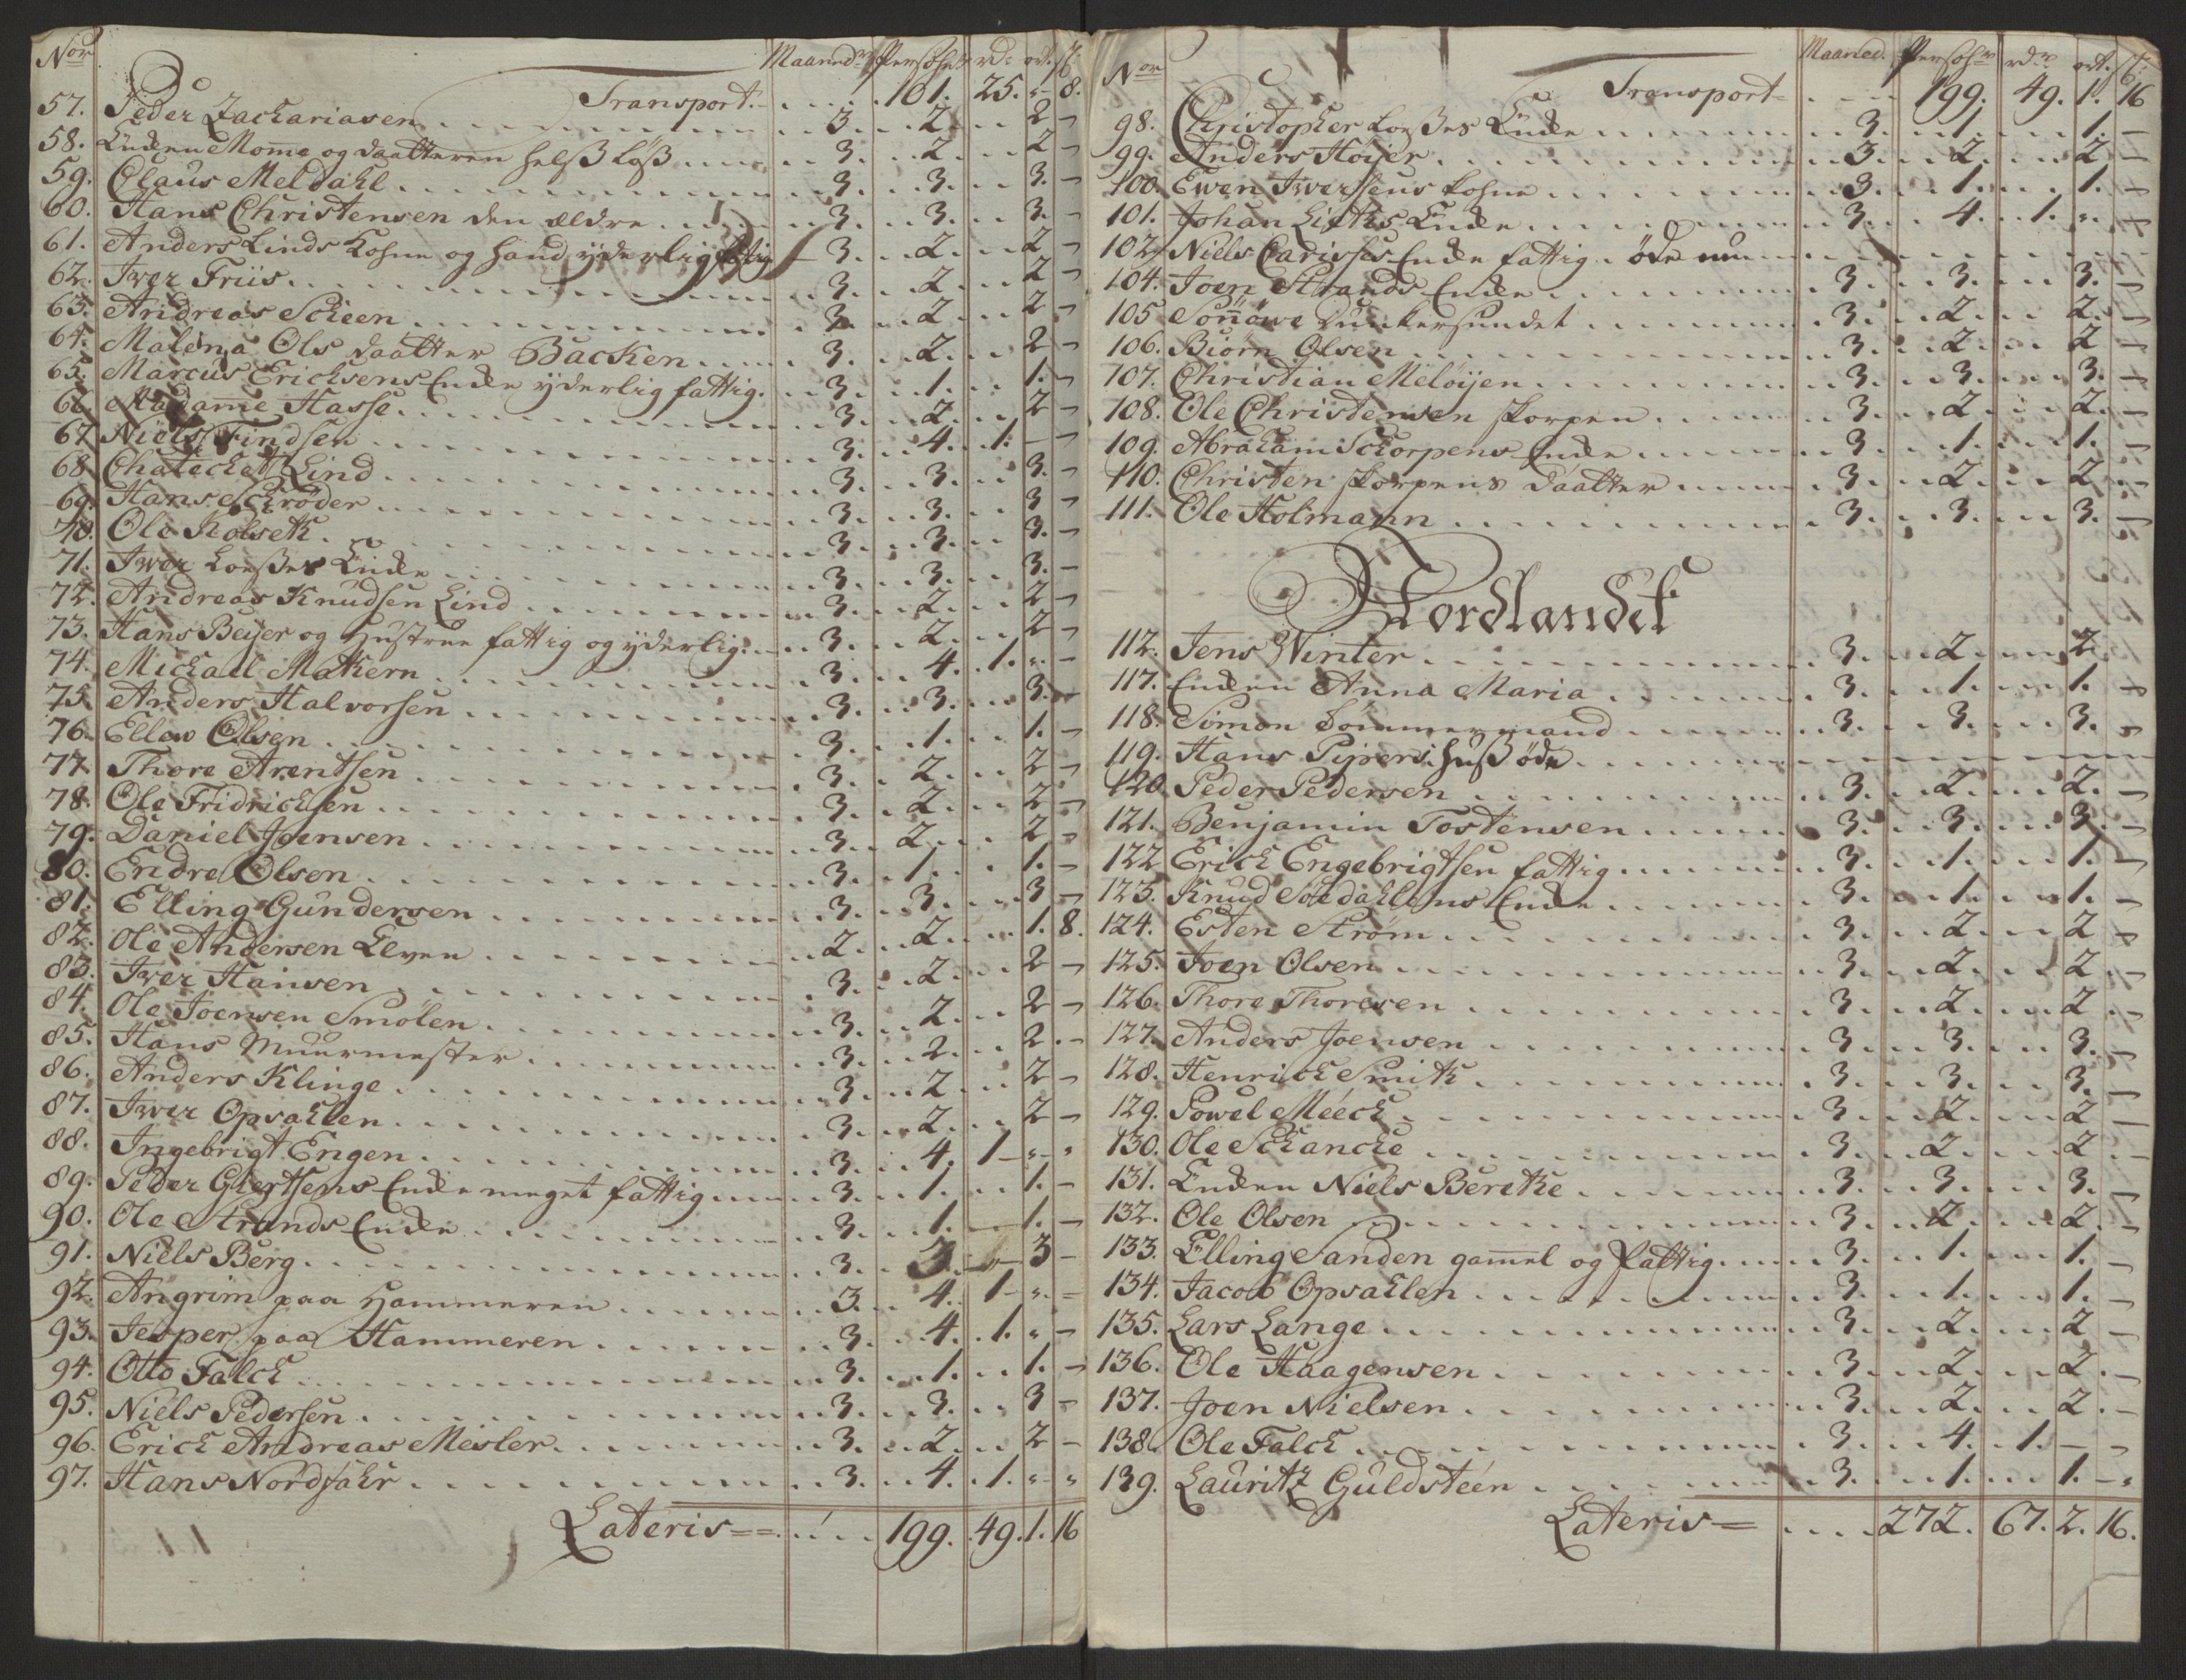 Nor Maaned Persohn rd ort ß
Transport 101. 25. „ 8.
57. Peder Zachariasen 3. 2. 2 -
58. Enken Mome og daatteren helst løß 3. 2. 2 -
59. Claus Meldahl 3. 3. 3. -
60. Hans Christensen den ældre 3. 3. 3. -
61. Anders Linds Kohne og hand yderlig fattig 3. 2. 2 -
62. Iver Friis 3. 2. 2 -
63. Andreas Scheen 3. 2. 2 -
64. Malena Ols daatter Backen 3. 2. 2 -
65. Marcus Erichsens Enke yderlig fattig. 3. 1. 1. -
66. Madame Hasse 3. 2. 2 -
67. Niels Findsen 3. 4. 1. - -
68. Lind 3. 3. 3. -
69. Hans Schrøder 3. 3. 3 -
70. Ole Rolseth 3. 3. 3. -
71. Iver Loeßes Enke 3. 3. 3. -
72. Andreas Knudsen Lind 3. 2. 2 -
73. Hans Beyer og Hustrue fattig og yderlig. 3. 2. 2 -
74. Michael Mathern 3. 4. 1. „ -
75. Anders Halvorsen 3. 3. 3. -
76. Ellew Olsen 3. 1. 1. -
77. Thore Arentsen 3. 2. 2 -
78. Ole Fridrichsen 3. 2. 2 -
79. Daniel Joensen 3. 2. 2 -
80. Endre Olsen 3. 1. 1. -
81. Elling Gundersen 3. 3. 3 -
82. Ole Andersen Elven 2. 2. 1. 8.
83. Iver Hansen 3. 2. 2 -
84. Ole Joensen Smølen 3. 2. 2 -
85. Hans Muurmester 3. 2. 2. -
86. Anders Klinge 3. 2. 2 -
87. Iver Opsahlen 3. 2. 2 -
88. Ingebrigt Engen 3. 4. 1 - „ „
89. Peder Giertsens Enke meget fattig 3. 1. 1. -
90. Ole Strands Enke 3. 1. 1. -
91. Niels Berg 3. 3. 3 -
92. Angrim paa Hammeren 3. 4. 1 - „ -
93. Jesper paa Hammeren 3. 4. 1. „ -
94. Otto Falch 3. 1. 1. -
95. Niels Pedersen 3. 3. 3 -
96. Erich Andreas Mesler 3. 2. 2 -
97. Hans Nordfahr 3. 4. 1. „ „
Lateris 199. 49. 1. 16
Nor Maaned. Persohn rdr ort. ß
Transport 199. 49. 1. 16
98. Christopher Loeßes Enke 3. 1. 1. -
99. Anders Høyer 3. 2. 2 -
100. Ewen Iversens Kohne 3. 1. 1. -
101. Johan Lieths Enke 3. 4. 1. „ -
102. Niels Carisses Enke fattig. øde
104. Joen Strands Enke 3. 3. 3. -
105 Sønnøwe Dunkersundet 3. 2. 2. -
106. Biørn Olsen 3. 2. 2 -
107. Christian Meløyen 3. 3. 3. -
108. Ole Christensen Skorpen 3. 2. 2. -
109. Abraham Schorpens Enke 3. 1. 1. -
110. Christen Skorpens daatter 3. 2. 2. -
111. Ole Holmann 3. 3. 3. -
Nordlandet
112. Jens Winter 3. 2. 2. -
117. Enken Anna Maria 3. 1. 1. -
118. Simon Tømmermand 3. 3. 3. -
119. Hans Pyrers Huß øde
120. Peder Pedersen 3. 2. 2. -
121. Benjamin Tostensen 3. 3. 3. -
122. Erich Engebrigtsen fattig 3. 1. 1. -
123. Knud Søedahlens Enke 3. 1. 1. -
124. Esten Strøm 3. 2. 2 -
125. Joen Olsen 3. 2. 2. -
126. Thore Thoresen 3. 2. 2. -
127. Anders Joensen 3. 3. 3. -
128. Henrich Smith 3. 3. 3. -
129. Powel Méeck 3. 2. 2 -
130. Ole Schancke 3. 2. 2. -
131. Enken Niels Berethe 3. 3. 3. -
132. Ole Olsen 3. 2. 2. -
133. Elling Sanden gamel og fattig 3. 1. 1. -
134. Jacob Opsahlen 3. 1. 1. -
135. Lars Lange 3. 2. 2 -
136. Ole Haagensen 3. 2. 2. -
137. Joen Nielsen 3. 2. 2. -
138. Ole Falch 3. 4. 1. - -
139. Lauritz Guldstéen 3. 1. 1. - „
Lateris 272. 67. 2. 16.